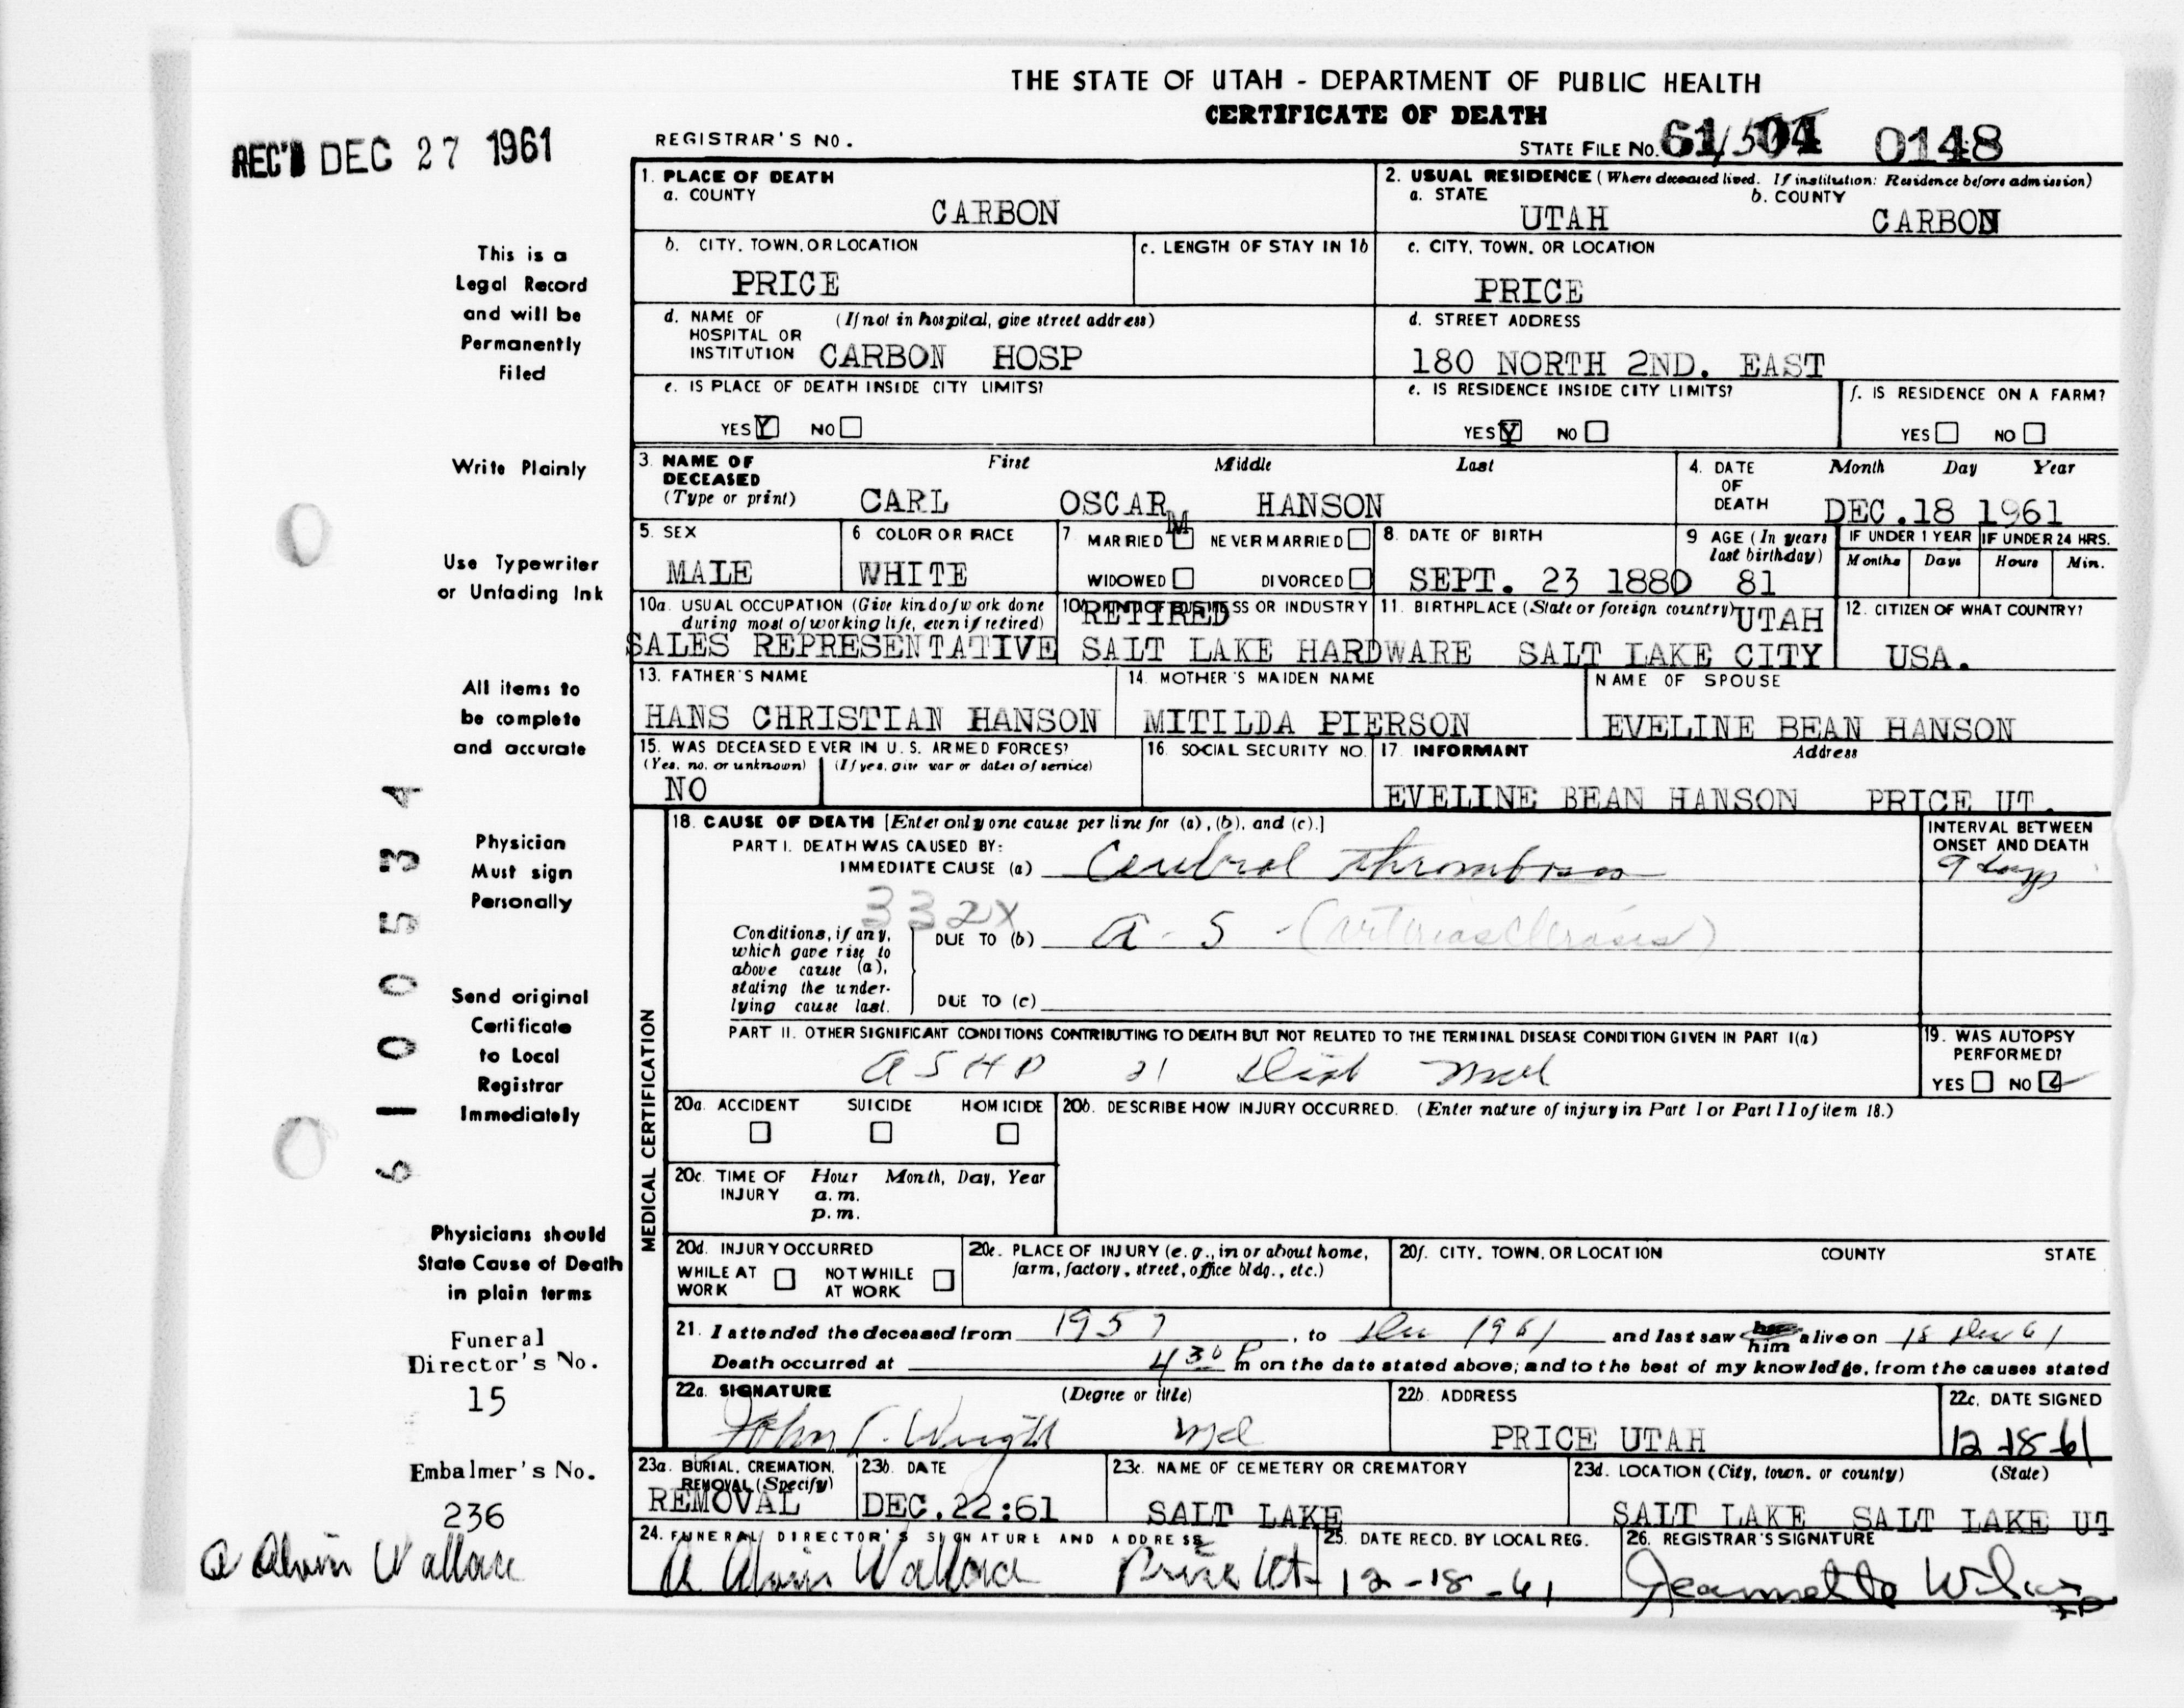 THE STATE OF UTAH - DEPARTMENT OF PUBLIC HEALTH
CERTIFICATE OF DEATH
REC'D DEC 27 1961
REGISTRAR'S NO.
STATE FILE NO. 61 0148
This is a
Legal Record
and will be
Permanently
Filed
Write Plainly
Use Typewriter
or Unfading Ink
All items to
be complete
and accurate
Physician
Must sign
Personally
Send original
Certificate
to Local
Registrar
Immediately
Physicians should
State Cause of Death
in plain terms
Funeral
Director's No.
15
Embalmer's No.
236
A Alvin Wallace
1. PLACE OF DEATH
a. COUNTY
CARBON
2. USUAL RESIDENCE (Where deceased lived. If institution: Residence before admission)
a. STATE b. COUNTY
UTAH CARBON
b. CITY, TOWN, OR LOCATION
PRICE
c. LENGTH OF STAY IN 1b
c. CITY, TOWN, OR LOCATION
PRICE
d. NAME OF (If not in hospital, give street address)
HOSPITAL OR
INSTITUTION CARBON HOSP
d. STREET ADDRESS
180 NORTH 2ND. EAST
e. IS PLACE OF DEATH INSIDE CITY LIMITS?
YES Y NO
e. IS RESIDENCE INSIDE CITY LIMITS?
YES Y NO
f. IS RESIDENCE ON A FARM?
YES NO
3. NAME OF First Middle Last
DECEASED
(Type or print) CARL OSCAR HANSON
4. DATE Month Day Year
OF
DEATH DEC.18 1961
5. SEX
MALE
6 COLOR OR RACE
WHITE
7 MARRIED M NEVER MARRIED
WIDOWED DIVORCED
8. DATE OF BIRTH
SEPT. 23 1880
9 AGE (In years
last birthday)
81
IF UNDER 1 YEAR IF UNDER 24 HRS.
Months Days Hours Min.
10a. USUAL OCCUPATION (Give kind of work done
during most of working life, even if retired)
SALES REPRESENTATIVE
10b. KIND OF BUSINESS OR INDUSTRY
RETIRED
SALT LAKE HARDWARE
11. BIRTHPLACE (State or foreign country) UTAH
SALT LAKE CITY
12. CITIZEN OF WHAT COUNTRY?
USA.
13. FATHER'S NAME
HANS CHRISTIAN HANSON
14. MOTHER'S MAIDEN NAME
MITILDA PIERSON
NAME OF SPOUSE
EVELINE BEAN HANSON
15. WAS DECEASED EVER IN U.S. ARMED FORCES?
(Yes, no, or unknown) (If yes, give war or dates of service)
NO
16. SOCIAL SECURITY NO.
17. INFORMANT Address
EVELINE BEAN HANSON PRICE UT.
MEDICAL CERTIFICATION
18. CAUSE OF DEATH [Enter only one cause per line for (a), (b), and (c).]
PART I. DEATH WAS CAUSED BY:
IMMEDIATE CAUSE (a) Cerebral thrombosis
INTERVAL BETWEEN
ONSET AND DEATH
9 days
332X
Conditions, if any,
which gave rise to
above cause (a),
stating the under-
lying cause last.
DUE TO (b) A-S - (arteriosclerosis)
DUE TO (c)
PART II. OTHER SIGNIFICANT CONDITIONS CONTRIBUTING TO DEATH BUT NOT RELATED TO THE TERMINAL DISEASE CONDITION GIVEN IN PART I(a)
ASHD 21 Diab Mel
19. WAS AUTOPSY
PERFORMED?
YES NO
20a. ACCIDENT SUICIDE HOMICIDE
20b. DESCRIBE HOW INJURY OCCURRED. (Enter nature of injury in Part I or Part II of item 18.)
20c. TIME OF Hour Month, Day, Year
INJURY a.m.
p.m.
20d. INJURY OCCURRED
WHILE AT NOT WHILE
WORK AT WORK
20e. PLACE OF INJURY (e.g., in or about home,
farm, factory, street, office bldg., etc.)
20f. CITY, TOWN, OR LOCATION COUNTY STATE
21. I attended the deceased from 1957, to Dec 1961 and last saw her him alive on 18 Dec 61
Death occurred at 4 30 P m on the date stated above; and to the best of my knowledge, from the causes stated
22a. SIGNATURE (Degree or title)
John Wright Md
22b. ADDRESS
PRICE UTAH
22c. DATE SIGNED
12-18-61
23a. BURIAL, CREMATION,
REMOVAL (Specify)
REMOVAL
23b. DATE
DEC.22:61
23c. NAME OF CEMETERY OR CREMATORY
SALT LAKE
23d. LOCATION (City, town, or county) (State)
SALT LAKE SALT LAKE UT
24. FUNERAL DIRECTOR'S SIGNATURE AND ADDRESS
A Alvin Wallace Price Ut
25. DATE RECD. BY LOCAL REG.
12-18-61
26. REGISTRAR'S SIGNATURE
Jeannette
6 1 0 0 5 3 4